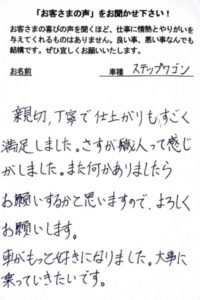 「お客さまの声」をお聞かせ下さい！
お客さまの喜びの声を聞くほど、仕事に情熱とやりがいを
与えてくれるものはありません。良い事、悪い事なんでも
結構です。ぜひ宜しくお願いいたします。
お名前 車種 ステップワゴン
親切、丁寧で仕上がりもすごく
満足しました。さすが職人って感じ
がしました。また何かありましたら
お願いするかと思いますので、よろしく
お願いします。
車がもっと好きになりました。大事に
乗っていきたいです。